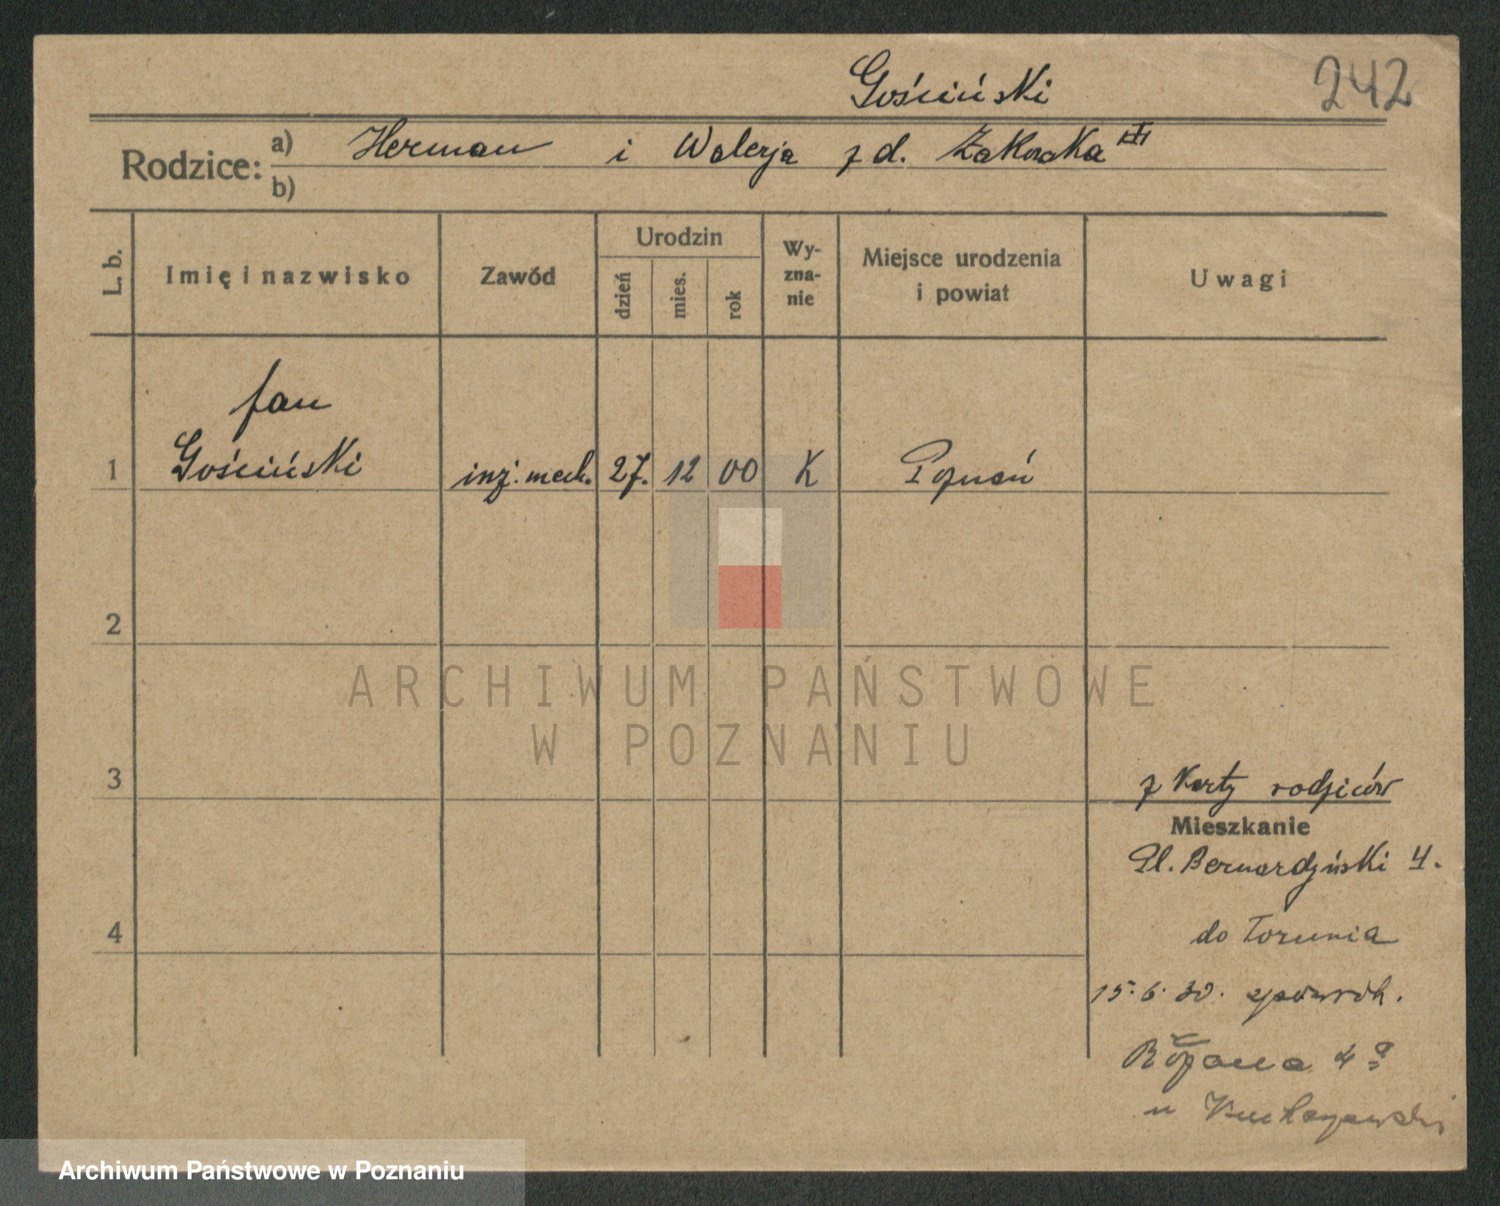 Gościński
242
Rodzice: a) Herman i Walerja z d.
b)
L. b.
Imię i nazwisko
Zawód
Urodzin
dzień
mies.
rok
Wy-
zna-
nie
Miejsce urodzenia
i powiat
Uwagi
Jan
1 Gościński inż. mech. 27. 12 00 K Poznań
2
3
4
z Karty rodziców
Mieszkanie
Pl. Bernardyński 4.
do Torunia
15. 6. 30.
Różana 4a
u
ARCHIWUM PAŃSTWOWE
W POZNANIU
Archiwum Państwowe w Poznaniu